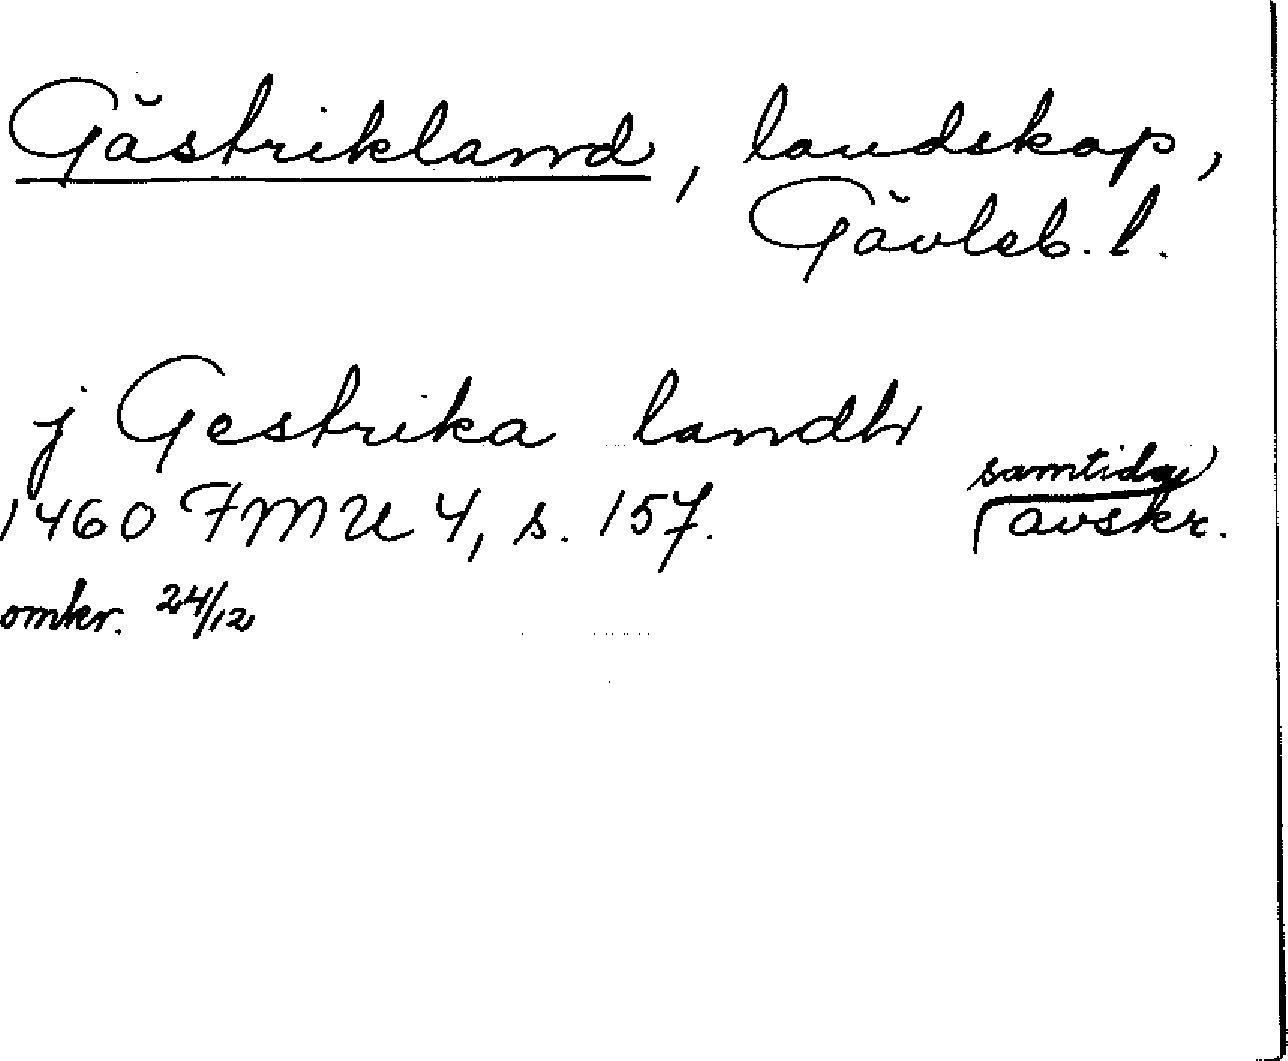 Gästrikland, landskap,
Gävleb. l.
j Gestrika landh
samtida
1460 FMU 4, s. 157. avskr.
omkr. 24/12